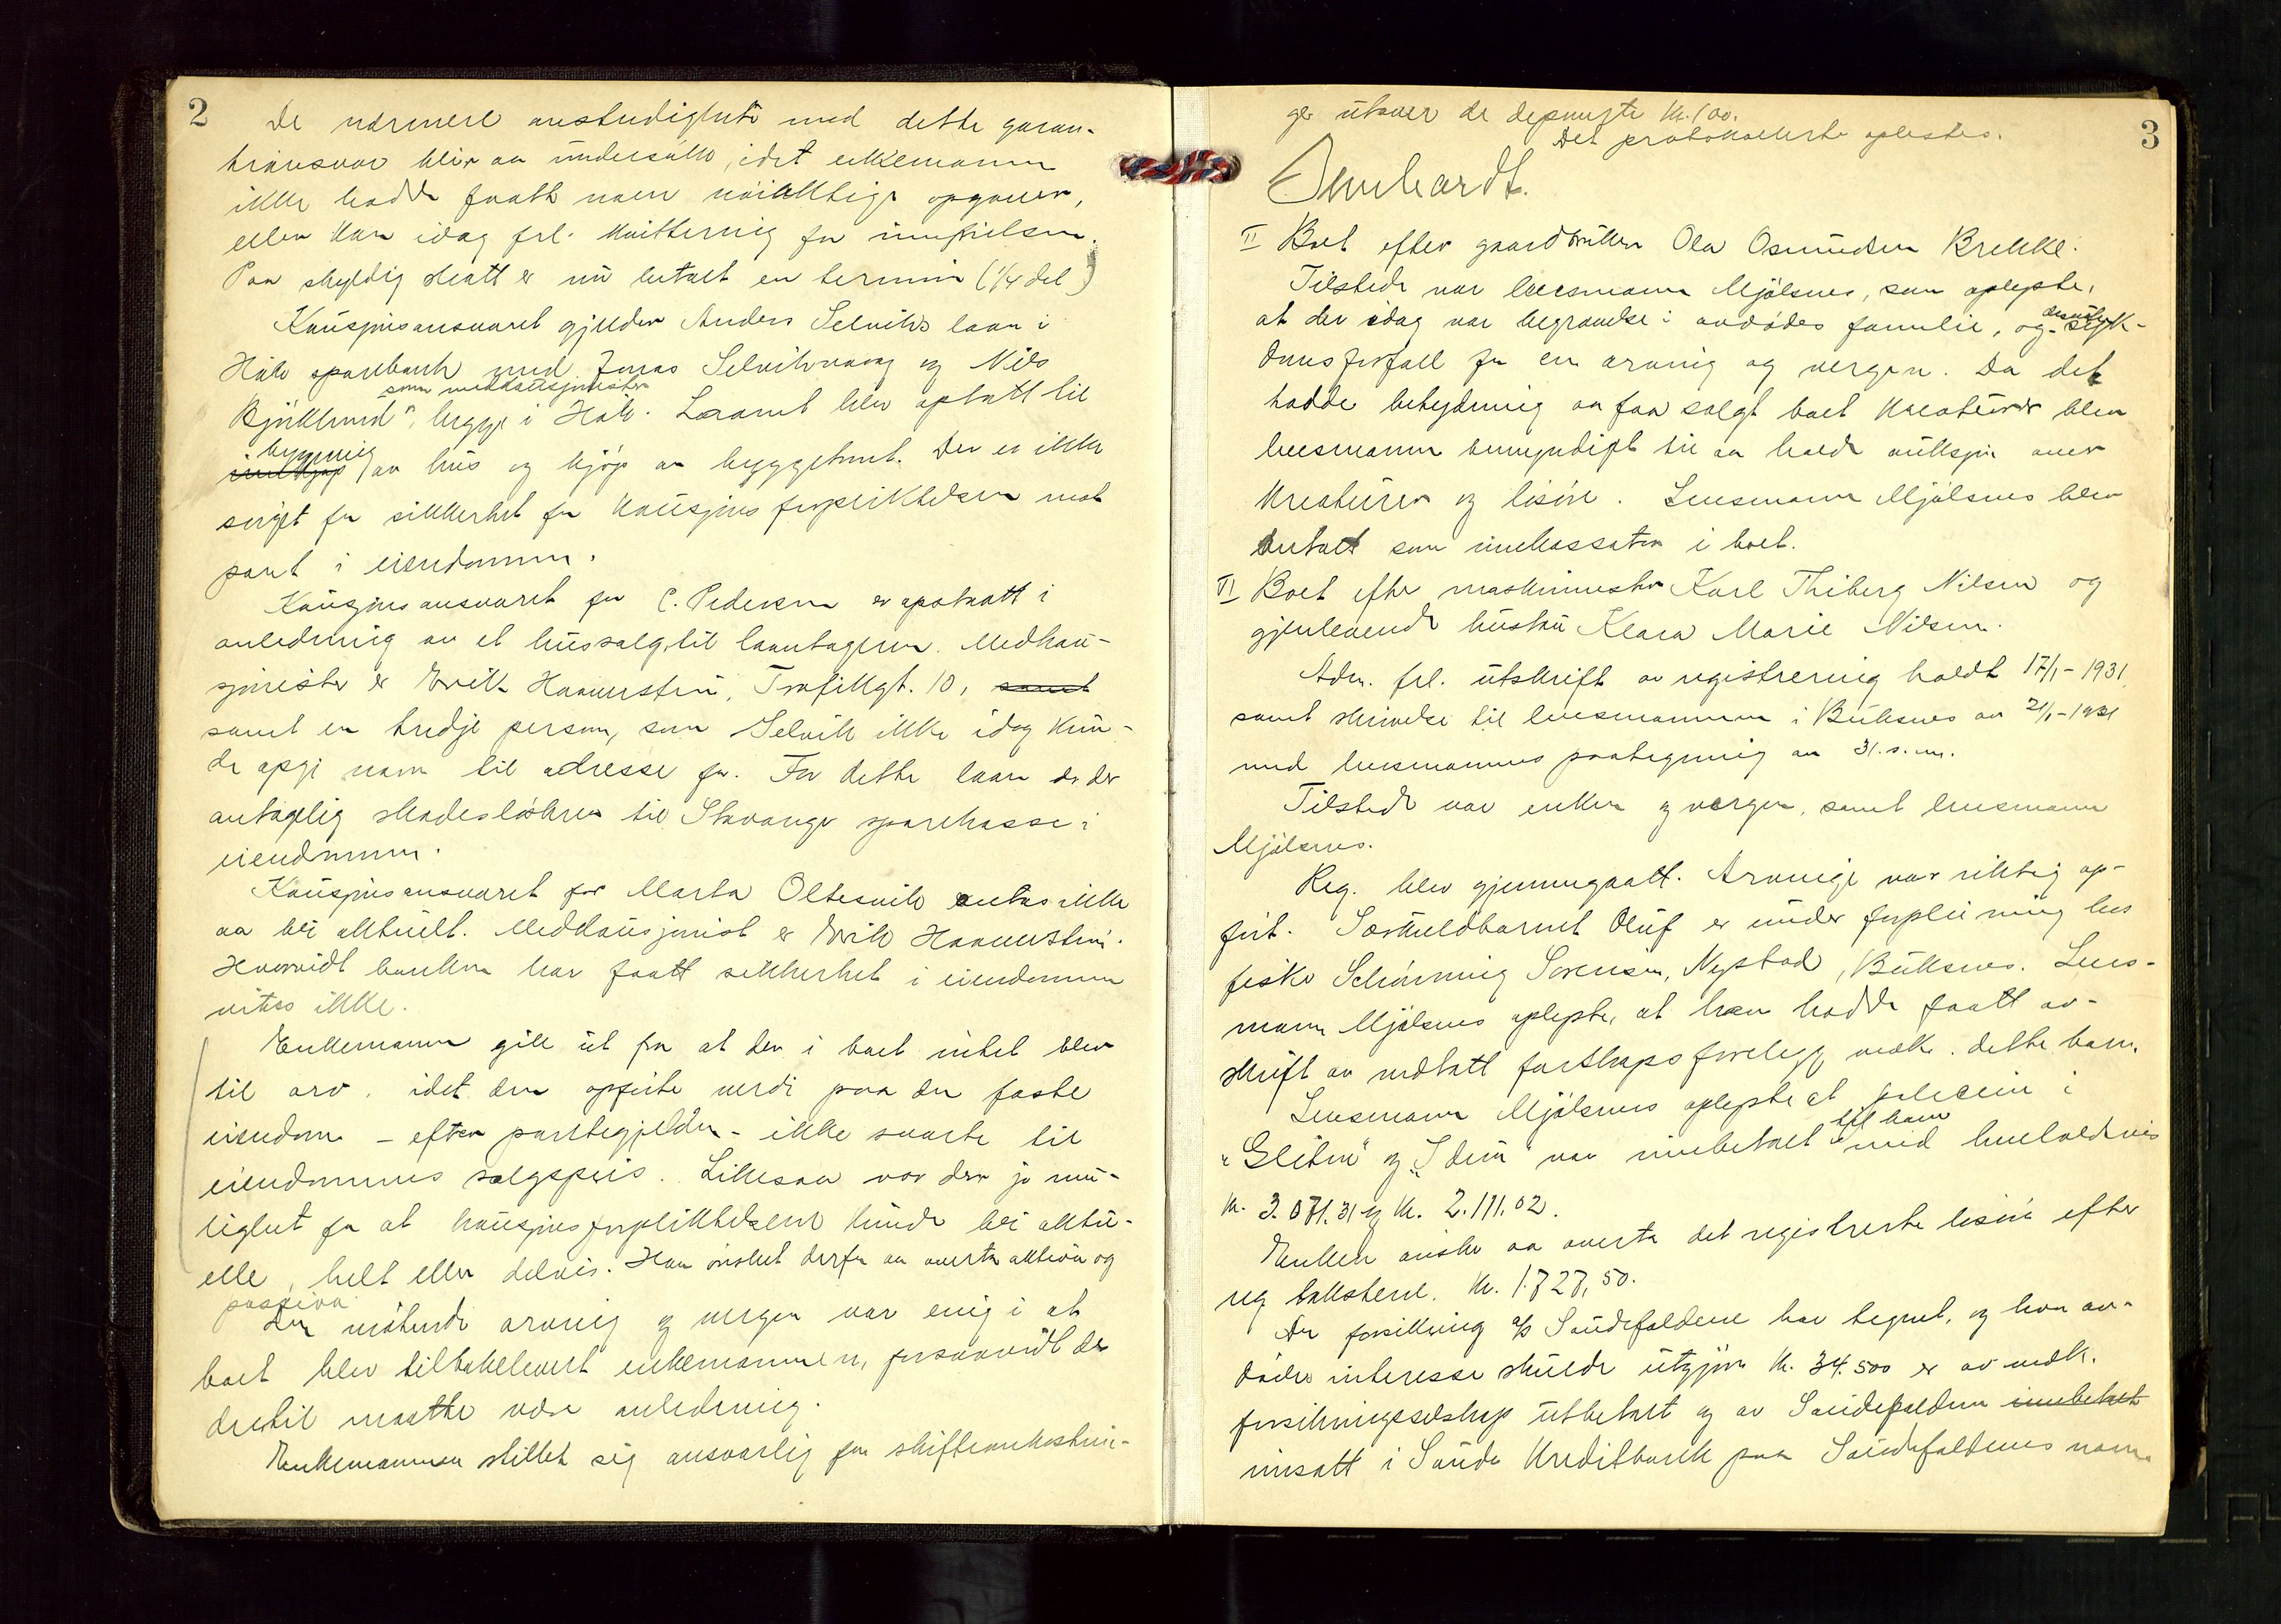 2
De nærmere omstendigheter med dette garan-
tiansvar blir aa undersøke, idet enkemannen
ikke hadde faatt noen nøiaktige opgaver,
eller kan idag frl. kvittering for innfrielsen.
Paa skyldig skatt er nu betalt en termin (1/4 del)
Kausjonsansvaret gjelder Anders Selviks laan i
Høle sparebank med Jonas Selvikvaag og Nils
Bjørklund, som medkausjonister begge i Høle. Laanet blev optatt til
innkjøp bygging av hus og kjøp av byggetomt. Der er ikke
sørget for sikkerhet for kausjonsforpliktelsen mot
pant i eiendommen.
Kausjonsansvaret for C. Pedersen er opstaatt i
anledning av et hussalg til laantageren. Medkau-
sjonister er Eirik Haauerstein, Trafikkgt. 10, samt
samt en tredje person, som Selvik ikke idag kun-
de opgi navn til adresse for. For dette laan er der
antagelig skadesløsbrev til Stavanger sparekasse i
eiendommen.
Kausjonsansvaret for Marta Oltesvik antas ikke
aa bli aktuelt. Medkausjonist er Eirik Haauerstein.
Hvorvidt banken har faatt sikkerhet i eiendommen
vites ikke.
Enkemannen gikk ut fra at der i boet intet blev
til arv, idet den opførte verdi paa den faste
eiendom - efter pantegjelden - ikke svarte til
eiendommens salgspris. Likesaa var der jo mu-
lighet for at kausjonsforpliktelsene kunde bli aktu-
elle, helt eller delvis. Han ønsket derfor aa overta aktiva og
passiva.
Den møtende arving og vergen var enig i at
boet blev tilbakelevert enkemannen, forsaavidt der
dertil maatte være anledning.
Enkemannen stillet sig ansvarlig for skifteomkostnin-
3
ger utover de deponerte kr. 100.
Det protokollerte oplestes.
II Boet efter gaardbruker Ola Osmundsen Brekke.
Tilstede var lensmann Mjølsnes, som oplyste,
at der idag var begravelse i avdødes familie, og dessuten syk-
domsforfall for en arving og vergen. Da det
hadde betydning aa faa solgt boets kreaturer blev
lensmannen bemyndiget til aa holde auksjon over
kreaturer og løsøre. Lensmann Mjølsnes blev
antatt som innkassator i boet.
VI Boet efter maskinmester Karl Thiberg Nilsen og
gjenlevende hustru Klara Marie Nilsen.
Adm. frl. utskrift av registrering holdt 17/1-1931
samt skrivelse til lensmannen i Buksnes av 21/1-1931
med lensmannens paategning av 31. s. m.
Tilstede var enken og vergen, samt lensmann
Mjølsnes.
Reg. blev gjennemgaatt. Arvinge var riktig op-
ført. Særkullbarnet Oluf er under forpleining hos
fisker Schønning Sørensen, Nystad, Buksnes. Lens-
mann Mjølsnes oplyste, at han hadde faatt av-
skrift av vedtatt farskapsforelegg vedk. dette barn.
Lensmann Mjølsnes oplyste at policen i
"Gliten" og "Idun" var innbetalt til ham med henholdsvis
kr. 3.071.31 og kr. 2.111.02.
Enken ønsker aa overta det registrerte løsøre efter
reg. takstene. Kr. 1.727,50.
Den forsikring a/s Saudefaldene har tegnet, og hvor av-
dødes interesse skulde utgjøre kr. 34.500 er av vedk.
forsikringsselskap utbetalt og av Saudefaldene innbetalt
innsatt i Sauda Kreditbank paa Saudefaldenes navn